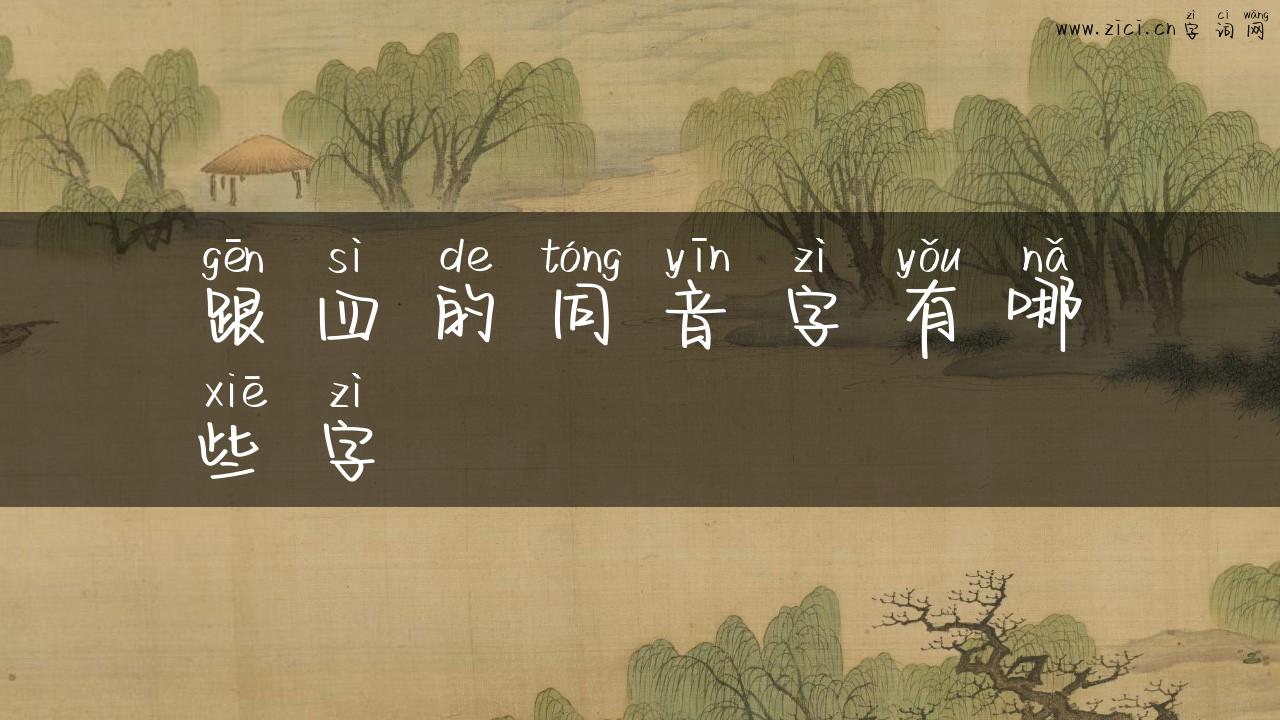 zì cí wǎng
www.zici.cn 字词网
gēn sì de tóng yīn zì yǒu nǎ
跟四的同音字有哪
xiē zì
些字